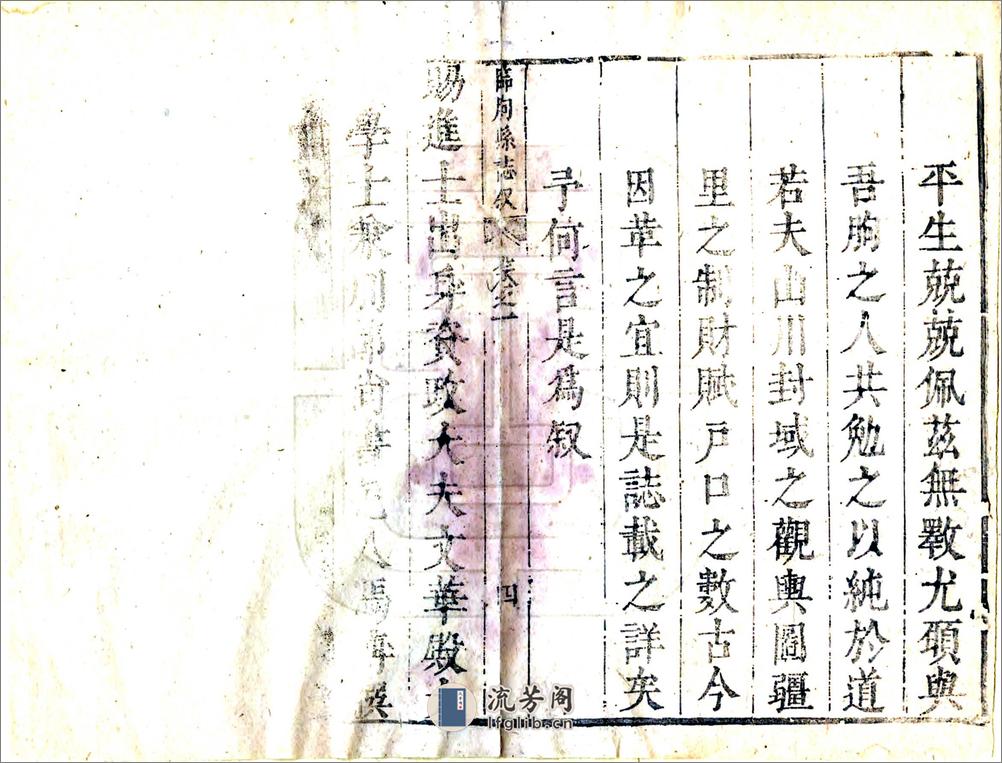 平生兢兢佩茲無斁尤碩與
吾朐之人共勉之以純於道
若夫山川封域之觀輿圖疆
里之制財賦戸口之數古今
因革之宜則是誌載之詳矣
予何言是爲叙
臨朐縣誌叙 卷之一 四
賜進士出身資政大夫文華殿大
學士兼刑部尚書 人馮溥撰
流芳阁
lfglib.cn